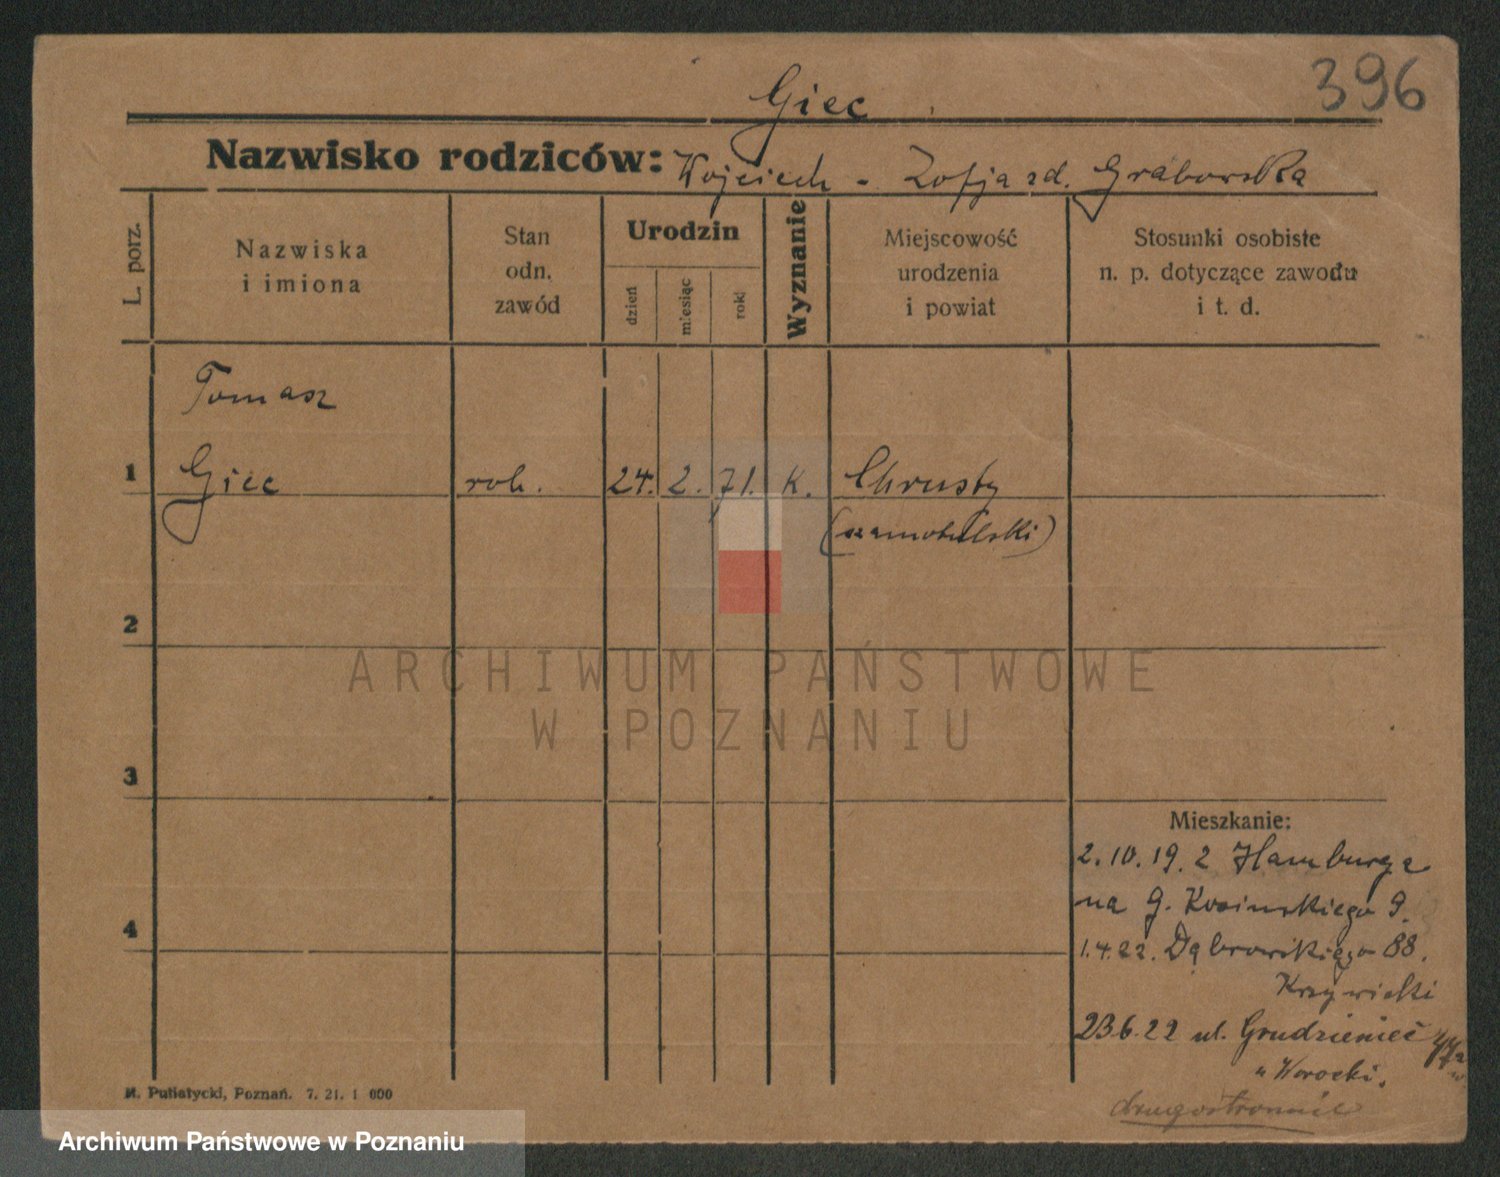 396
Giec
Nazwisko rodziców: Wojciech - Zofja zd. Grabowska
L. porz.
Nazwiska
i imiona
Stan
odn.
zawód
Urodzin
dzień
miesiąc
rok
Wyznanie
Miejscowość
urodzenia
i powiat
Stosunki osobiste
n. p. dotyczące zawodu
i t. d.
Tomasz
1 Giec rob. 24. 2. 71. K. Chrusty
(szamotulski)
2
ARCHIWUM PAŃSTWOWE
W POZNANIU
3
Mieszkanie:
2.10.19. z Hamburga
na G. Kosinskiego 9.
4
1.4.22. Dąbrowskiego 88.
Krzywicki
23.6.22 ul. Grudzieniec
u Worocki.
drugostronnie
M. Putiatycki, Poznań. 7. 21. 1 000
Archiwum Państwowe w Poznaniu